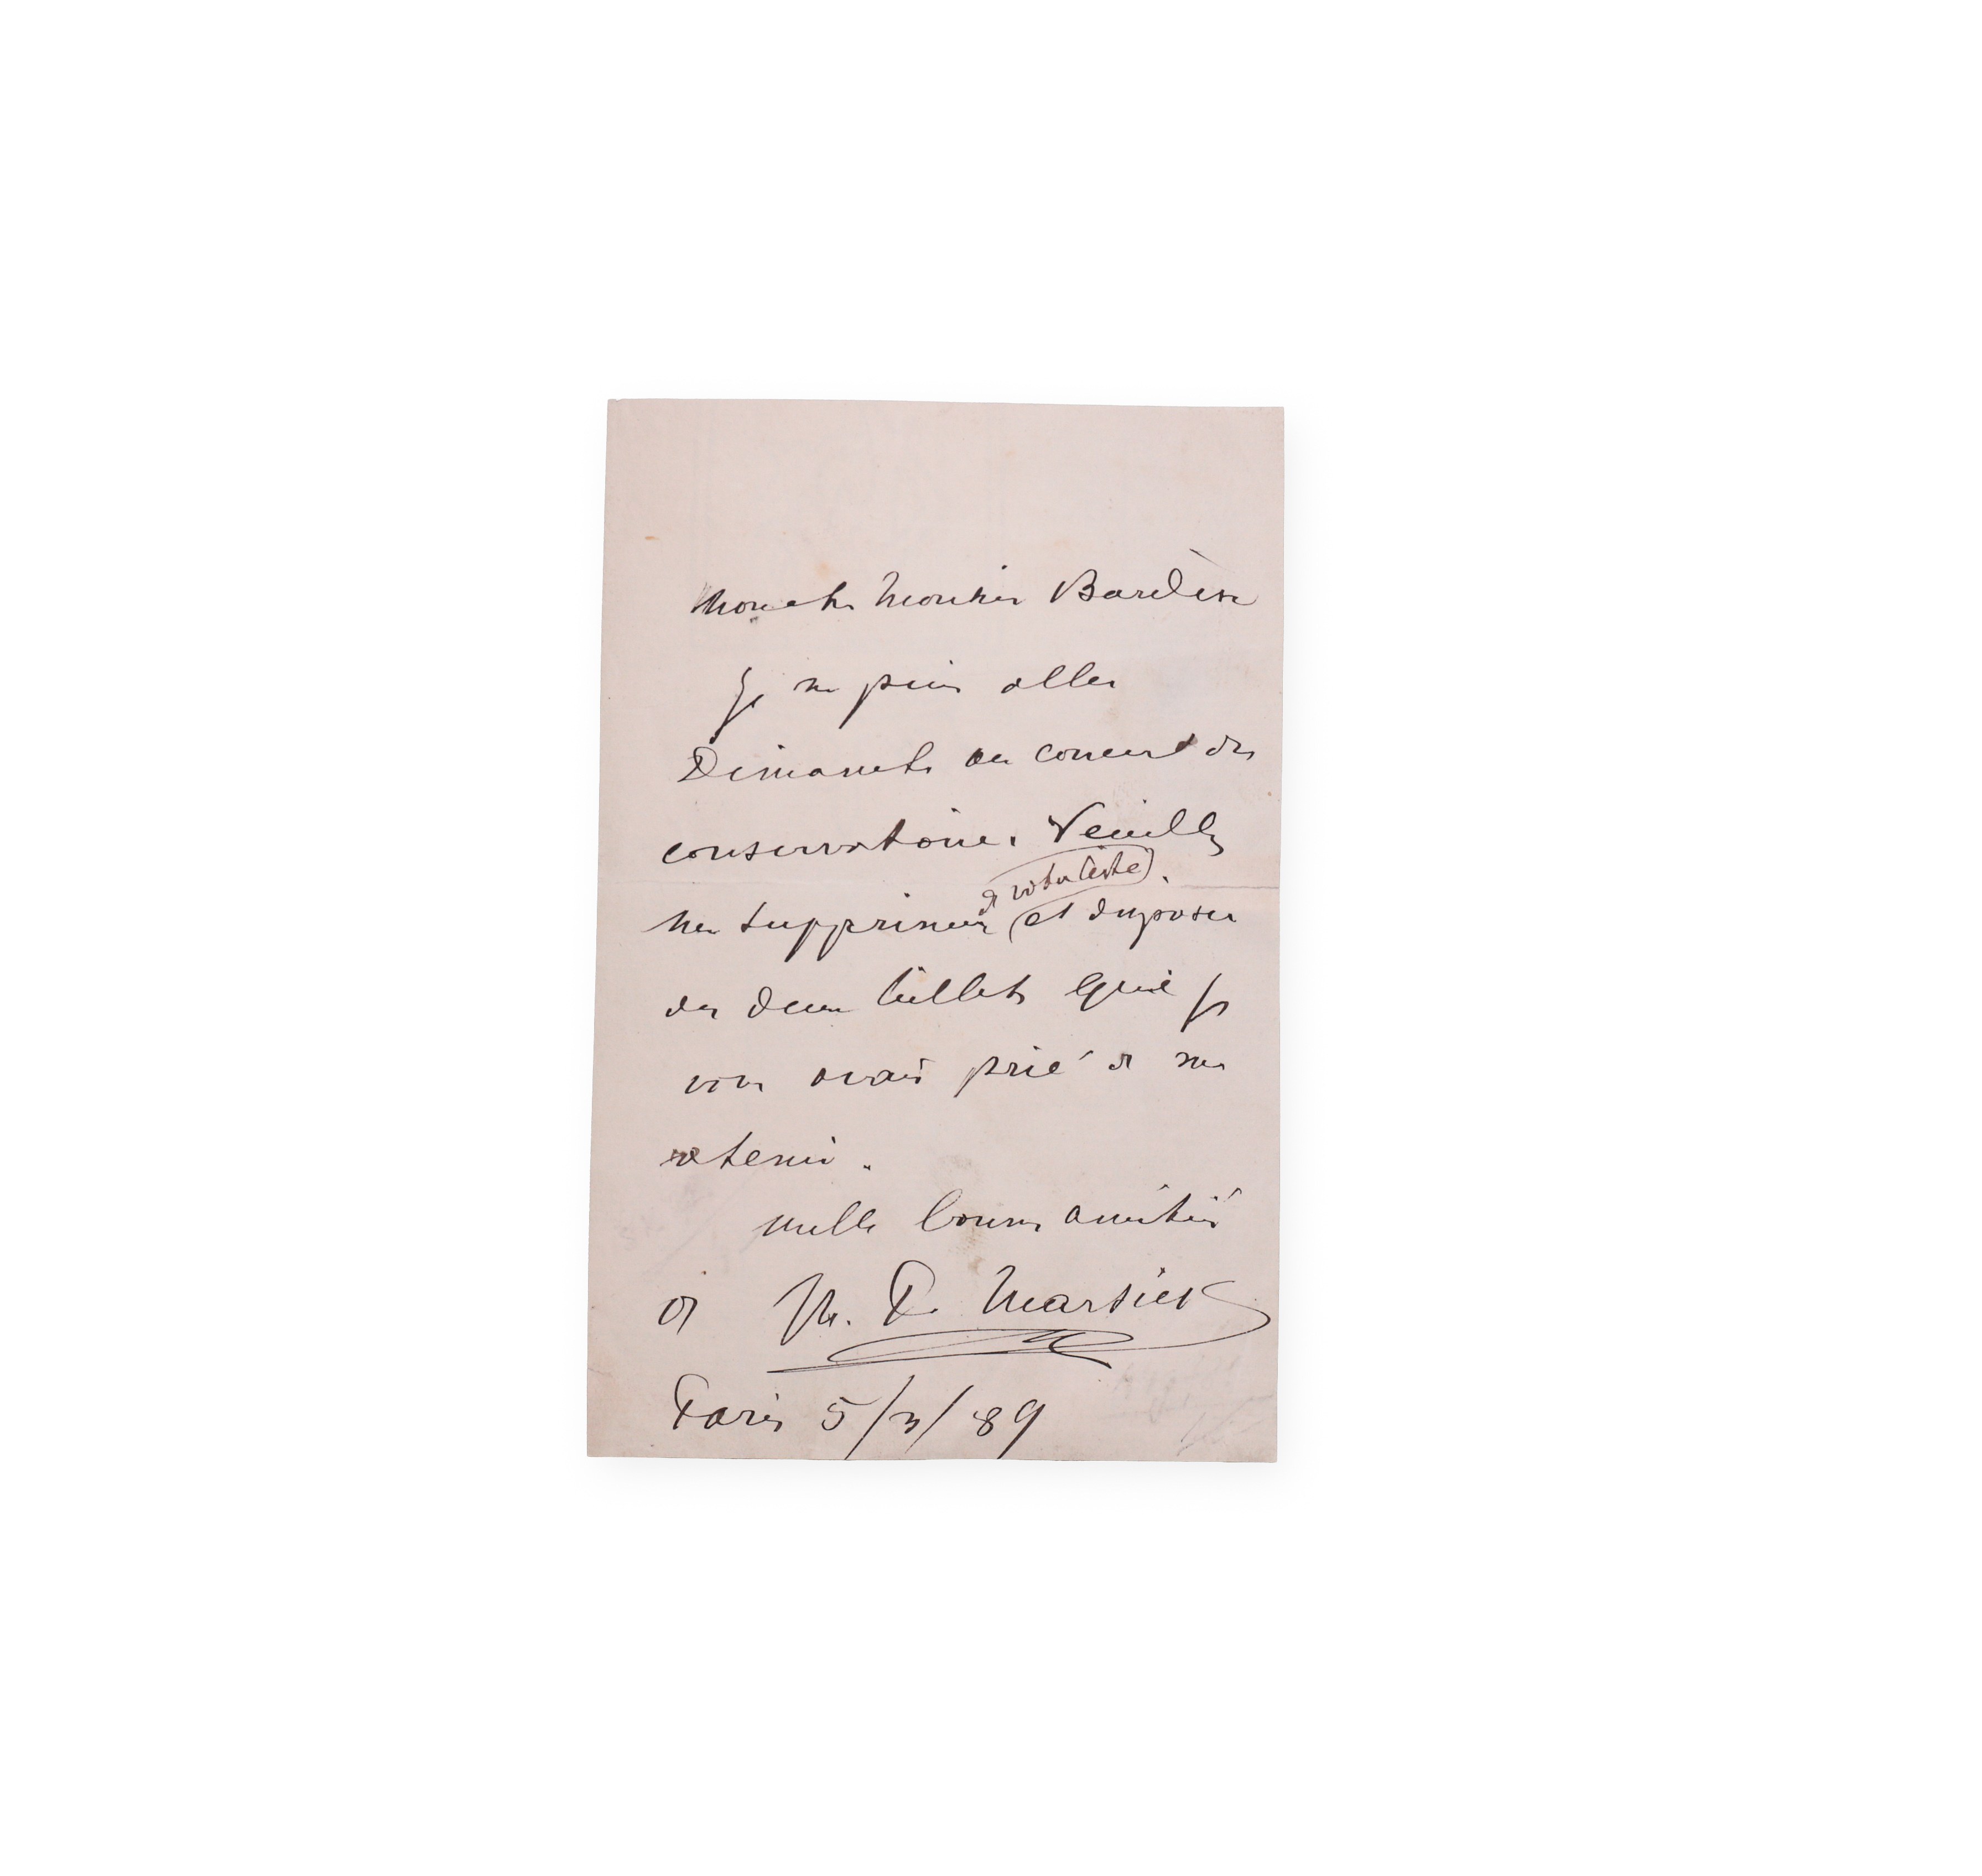 Mon cher Monsieur Bardère
Je ne puis aller
Dimanche au concert du
conservatoire. Veuillez
de votre liste
me supprimer et disposer
des deux billets que je
vous avais prié de me
retenir.
mille bonnes amitiés
de M. P. Marsick
Paris 5/3/89